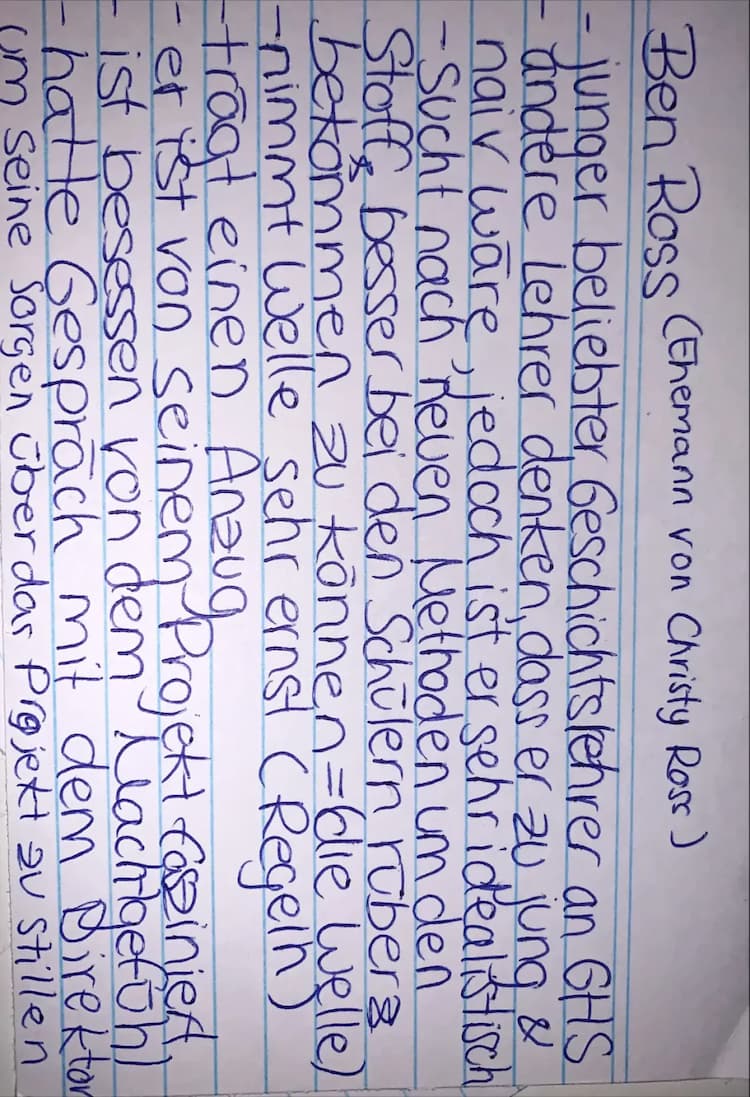 Ben Ross (Ehemann von Christy Ross)
- junger beliebter Geschichtslehrer an GHS
- andere Lehrer denken, dass er zu jung &
naiv wäre, jedoch ist er sehr idealistisch
- Sucht nach neuen Methoden um den
Stoff besser bei den Schülern rüber
bekommen zu können = (die Welle)
- nimmt Welle sehr ernst (Regeln)
- trägt einen Anzug
- er ist von seinem Projekt fasziniert
- ist besessen von dem Machtgefühl
- hatte Gespräch mit dem Direktor
um seine Sorgen über das Projekt zu stillen